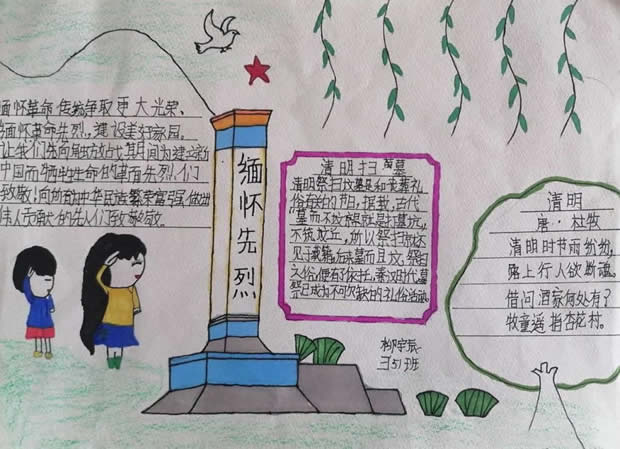 缅怀革命传统争取更大光荣,
缅怀革命先烈,建设美好家园。
让我们先向解放战其期间为建立新
中国而牺牲生命的革命先烈们
致敬!向为中华民族繁荣富强做出
伟人贡献的先人们致敬。
缅怀先烈
清明扫墓
清明祭扫坟墓是和丧葬礼
俗有关的节日,据载,古代
"墓而不坟就是只打墓坑,
不筑坟丘,所以祭扫就不
见于载籍。后来墓而且坟,祭扫
之俗便有了依托。秦汉时代,墓
祭已成为不可或缺的礼俗活动。
清明
唐·杜牧
清明时节雨纷纷,
路上行人欲断魂。
借问酒家何处有?
牧童遥指杏花村。
柳宇辰
三51班